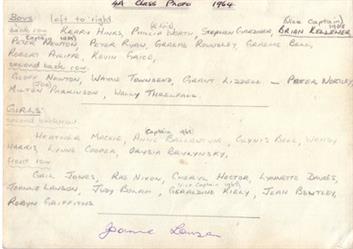 4A Class Photo 1964
Boys left to right
(Vice Captain)
back row Kerry Hinks, Philip Worth, Stephen Gardner, Brian Kelleher
Captain 1965
Peter Newton, Peter Ryan, Graeme Rounsley, Graeme Bell,
Robert Ayliffe, Kevin
second back row
Geoff Newton, Wayne Townsend, Grant Liddell - Peter Wortley,
Milton Parkinson, Wally Threlfall
GIRLS
second
Captain
Heather Mackie, Anne Ballantyne, Glynis Bell, Wendy
Harris Lynne Cooper, Orysia
front row
Gail Jones, Ros Nixon, Cheryl Hector, Lynnette Davies,
Vice Captain
Joanne Lawson, Judy Bolam, Geraldine Kiely, Jean Bentley,
Robyn Griffiths
Joanne